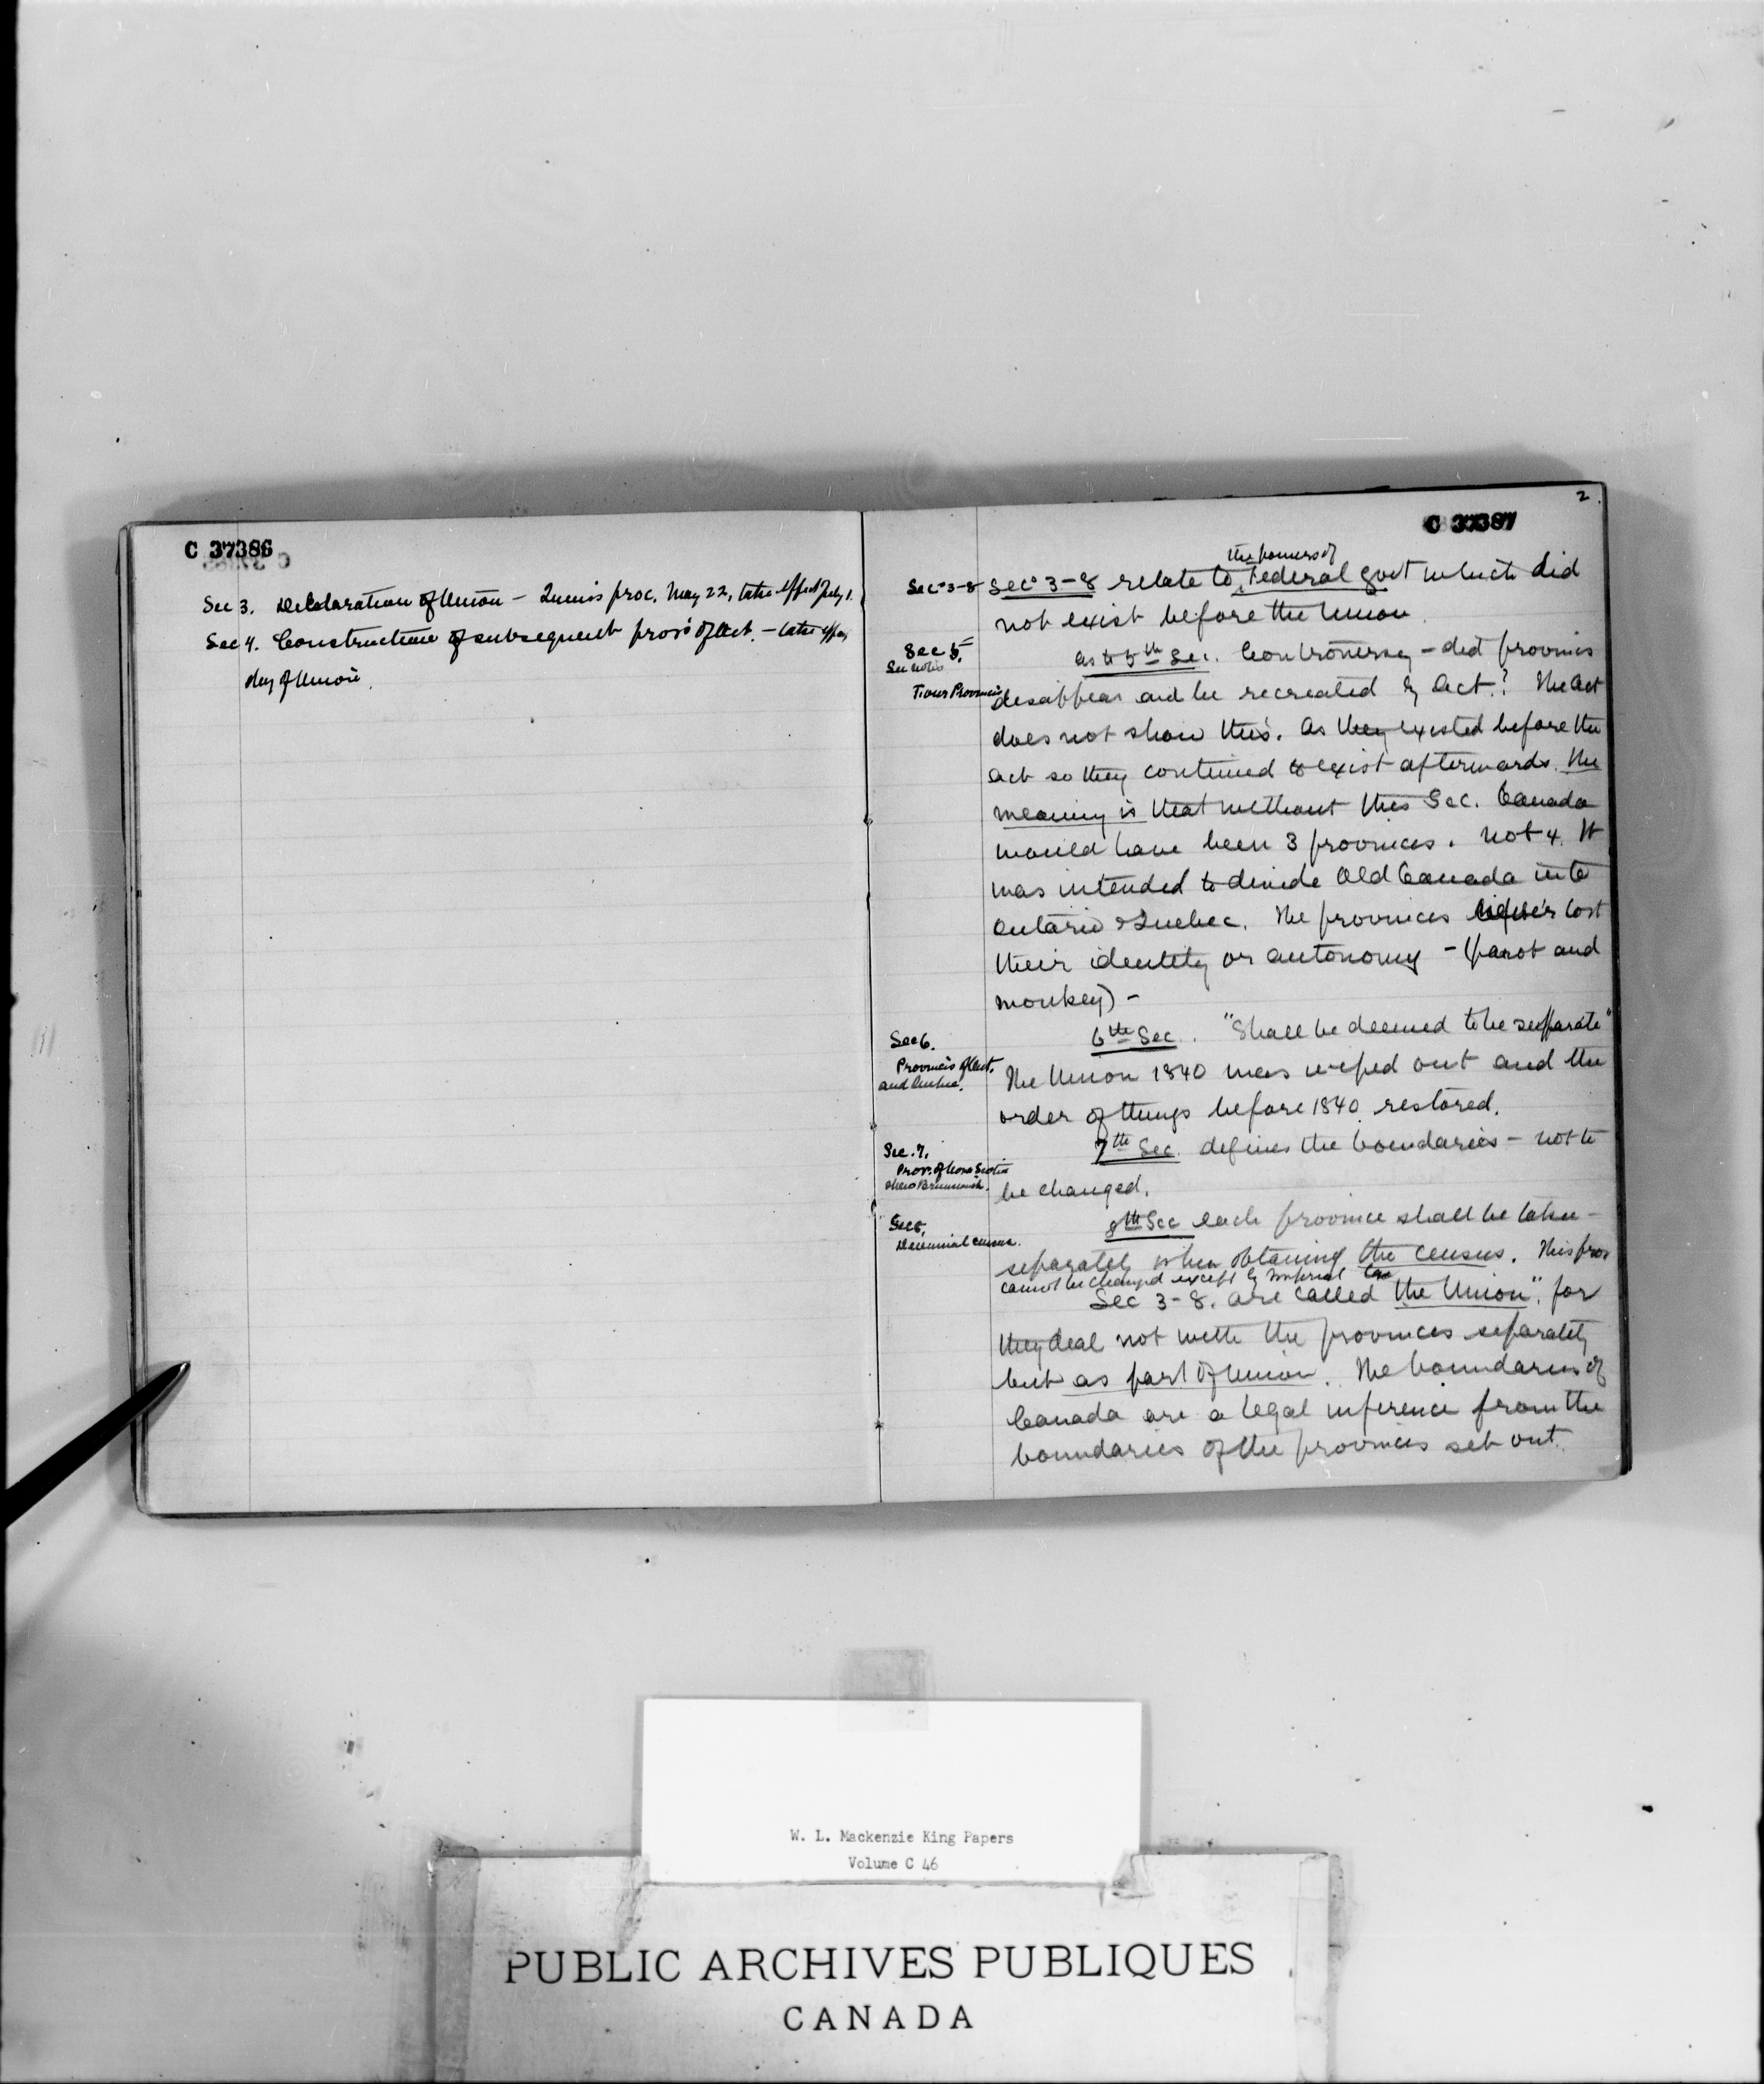 C 37386
Sec 3. Declaration of Union – Queen's proc. May 22, take effect July 1.
Sec 4. Construction of subsequent prov's of Act. – take effect
day of Union.
2
C 37387
Secs 3-8
the powers of
Secs 3-8 relate to Federal govt which did
not exist before the Union.
Sec 5.
See notes
Four Provinces
as to 5th Sec. Controversy – did provinces
disappear and be recreated by Act? The Act
does not show this. As they existed before the
act so they continued to exist afterwards. The
meaning is that without this Sec. Canada
would have been 3 provinces. not 4. It
was intended to divide Old Canada into
Ontario & Quebec. The provinces never lost
their identity or autonomy – (parot and
monkey) –
Sec 6.
Provinces of Ont.
and Quebec.
6th Sec. "Shall be deemed to be separate"
The Union 1840 was wiped out and the
order of things before 1840 restored.
Sec. 7.
Prov. of Nova Scotia
& New Brunswick.
7th Sec. defines the boundaries – not to
be changed.
Sec 8.
Decennial census.
8th Sec each province shall be taken –
separately when obtaining the census. This prov
cannot be changed except by Imperial Law
Sec 3-8. are called the Union", for
they deal not with the provinces separately
but as part of Union. The boundaries of
Canada are a legal inference from the
boundaries of the provinces set out.
W. L. Mackenzie King Papers
Volume C 46
PUBLIC ARCHIVES PUBLIQUES
CANADA